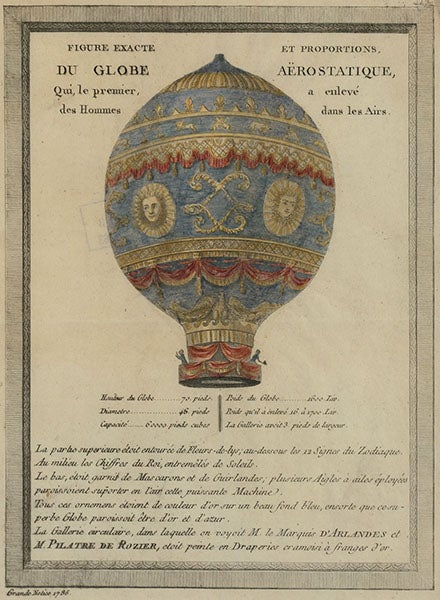 FIGURE EXACTE ET PROPORTIONS,
DU GLOBE AËROSTATIQUE,
Qui, le premier, a enlevé
des Hommes dans les Airs.
Hauteur du Globe..........70. pieds. Poids du Globe..........1600 Liv.
Diametre..........46. pieds. Poids qu'il a enlevé 16. à 1700 Liv.
Capacité......60000 pieds cubes La Gallerie avoit 3. pieds de largeur.
La partie superieure étoit entourée de Fleurs-de-lys, au-dessous les 12 Signes du Zodiaque.
Au milieu les Chiffres du Roi, entremêlés de Soleils.
Le bas, étoit garni de Mascarons et de Guirlandes; plusieurs Aigles à ailes éployées
paroissoient suporter en l'air cette puissante Machine.
Tous ces ornemens étoient de couleur d'or sur un beau fond bleu, ensorte que ce su-
perbe Globe paroissoit être d'or et d'azur.
La Gallerie circulaire, dans laquelle on voyoit M. le Marquis D'ARLANDES et
M. PILATRE DE ROZIER, étoit peinte en Draperies cramoisi à franges d'or.
Grande Notice 1786.